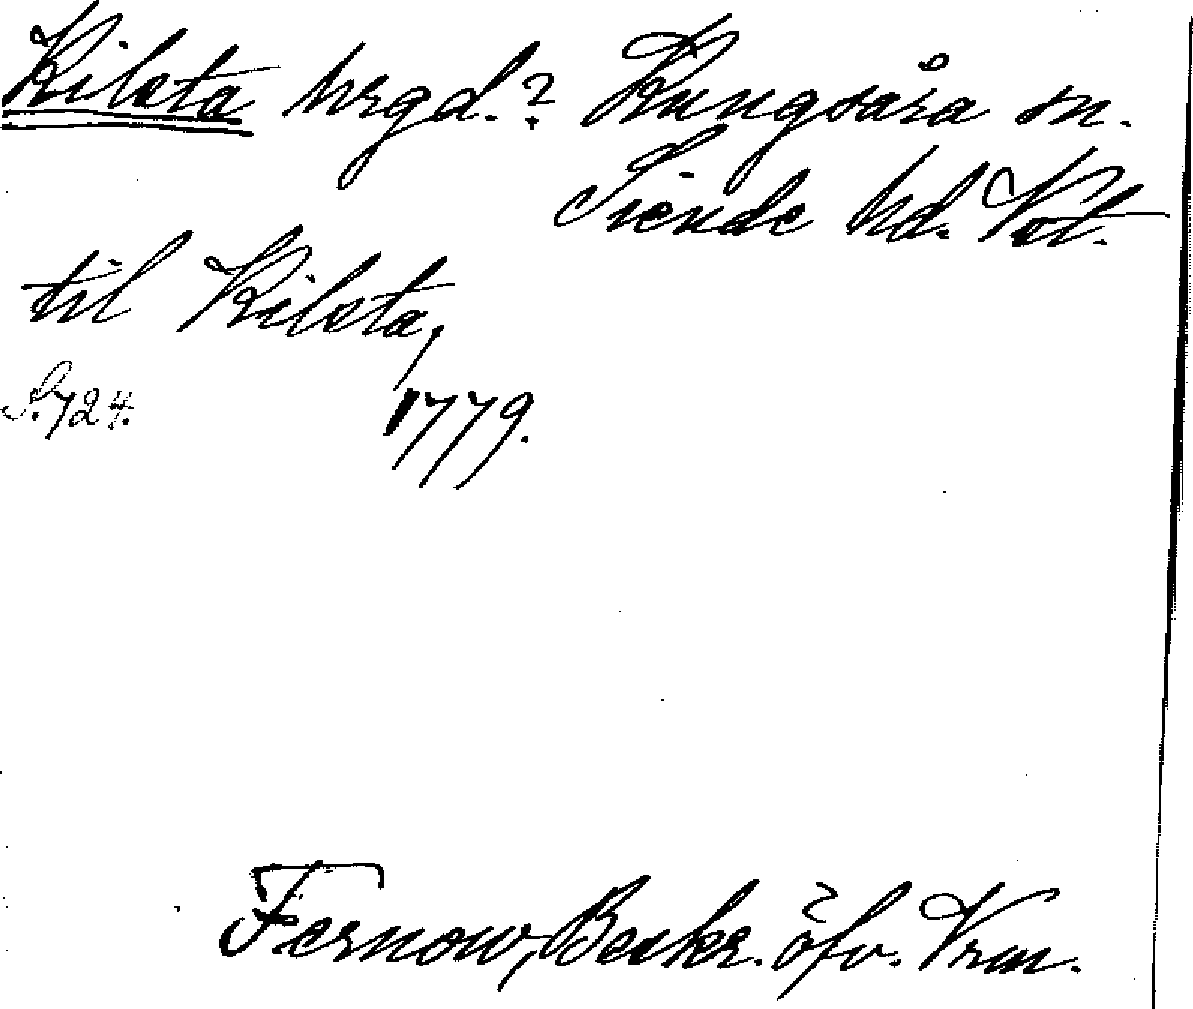 Kilsta hrgd.? Kungsåra sn.
Siende hd. Vst.
til Kilsta,
S. 724. 1779.
Fernow, Beskr. öfv. Vrm.